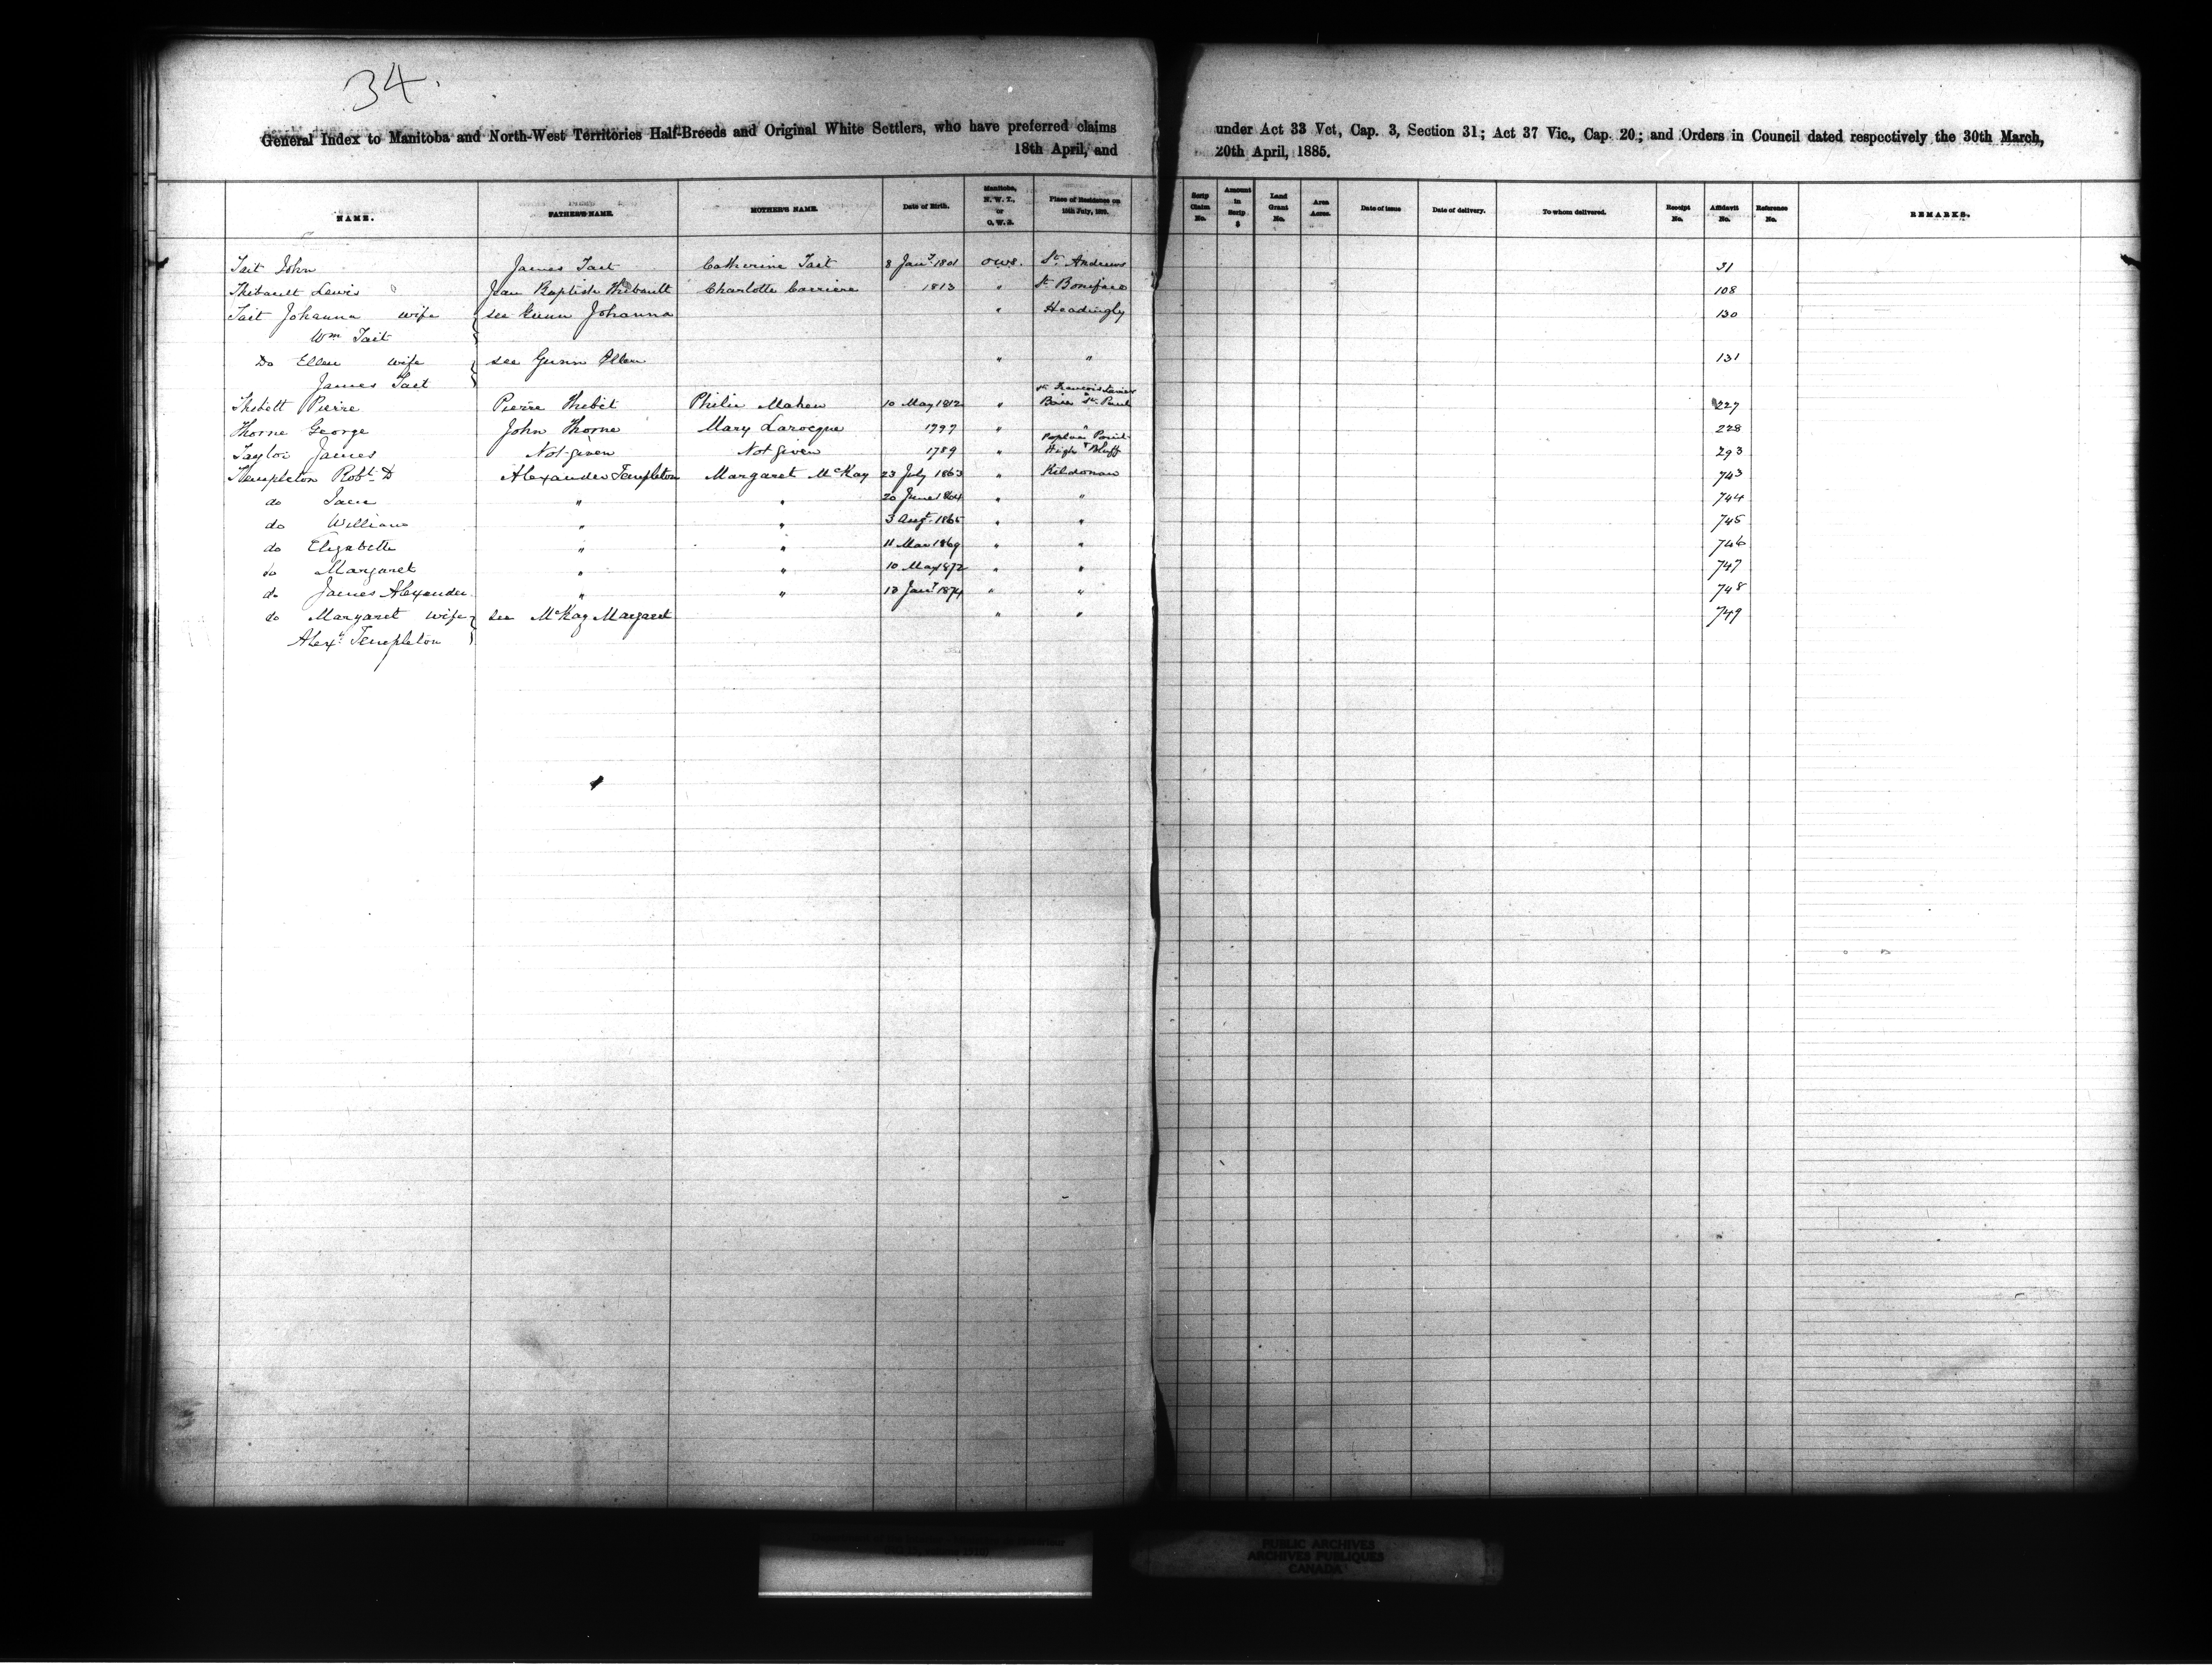 34.
General Index to Manitoba and North-West Territories Half-Breeds and Original White Settlers, who have preferred claims under Act 33 Vct, Cap. 3, Section 31; Act 37 Vic., Cap. 20; and Orders in Council dated respectively the 30th March,
18th April, and 20th April, 1885.
NAME. FATHER'S NAME. MOTHER'S NAME. Date of Birth. Manitoba, N. W. T., or O. W. S. Place of Residence on 15th July, 1870. Scrip Claim No. Amount in Scrip $ Land Grant No. Area Acres. Date of issue Date of delivery. To whom delivered. Receipt No. Affidavit No. Reference No. REMARKS.
Tait John James Tait Catherine Tait 8 Jany 1801 OWS. St. Andrews 31
Thibault Lewis Jean Baptish Thibault Charlotte Carriere 1813 " St. Boniface 108
Tait Johanna wife see Gunn Johanna " Headingly 130
Wm Tait
Do Ellen wife see Gunn Ellen " " 131
James Tait
St. Francois Xavier
Thebett Pierre Pierre Thebit Philie Maheu 10 May 1812 " Baie St. Paul 227
Thorne George John Thorne Mary Larocque 1797 " " 228
Poplar Point
Taylor James Not given Not given 1789 " High Bluff 293
Templeton Robt. D Alexander Templeton Margaret McKay 23 July 1863 " Kildonan 743
do Jane " " 20 June 1864 " " 744
do William " " 3 Augt. 1865 " " 745
do Elizabeth " " 11 Mar 1869 " " 746
do Margaret " " 10 May 1872 " " 747
do James Alexander " " 13 Jany 1874 " " 748
do Margaret wife see McKay Margaret " " 749
Alexr. Templeton
PUBLIC ARCHIVES
ARCHIVES PUBLIQUES
CANADA